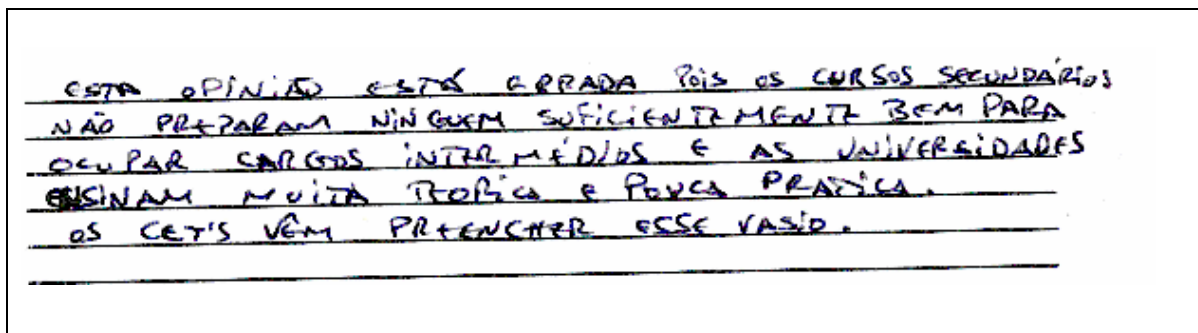 ESTA OPINIÃO ESTÁ ERRADA POIS OS CURSOS SECUNDÁRIOS
NÃO PREPARAM NINGUEM SUFICIENTEMENTE BEM PARA
OCUPAR CARGOS INTERMÉDIOS E AS UNIVERSIDADES
ENSINAM MUITA TEORICA E POUCA PRATICA.
OS CET'S VÊM PREENCHER ESSE VASIO.